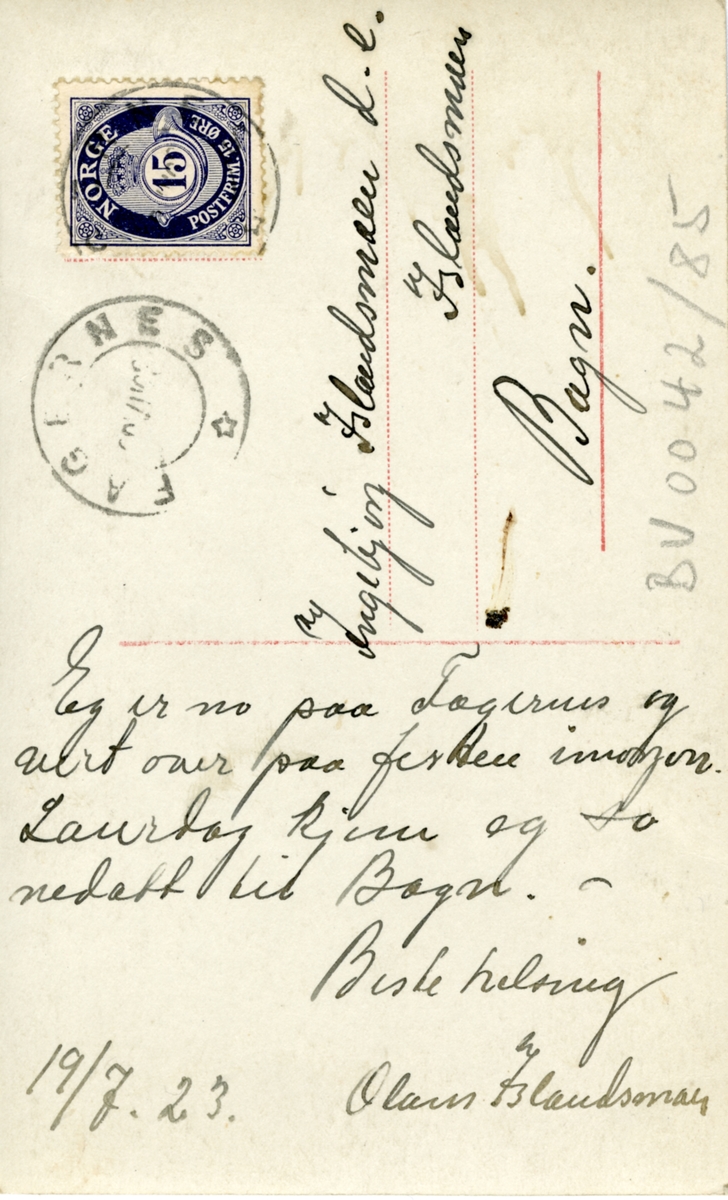 NORGE
15
POSTFRIM. 15 ØRE
FAGERNES
Ingebjörg Islandsmoen d. e.
Islandsmoen
Bagn.
BV 0042/85
Eg er no paa Fagernes og
vert over paa festen imorgon.
Laurdag kjem eg so
nedatt til Bagn. –
Beste helsing
Olaus Islandsmoen
19/7. 23.